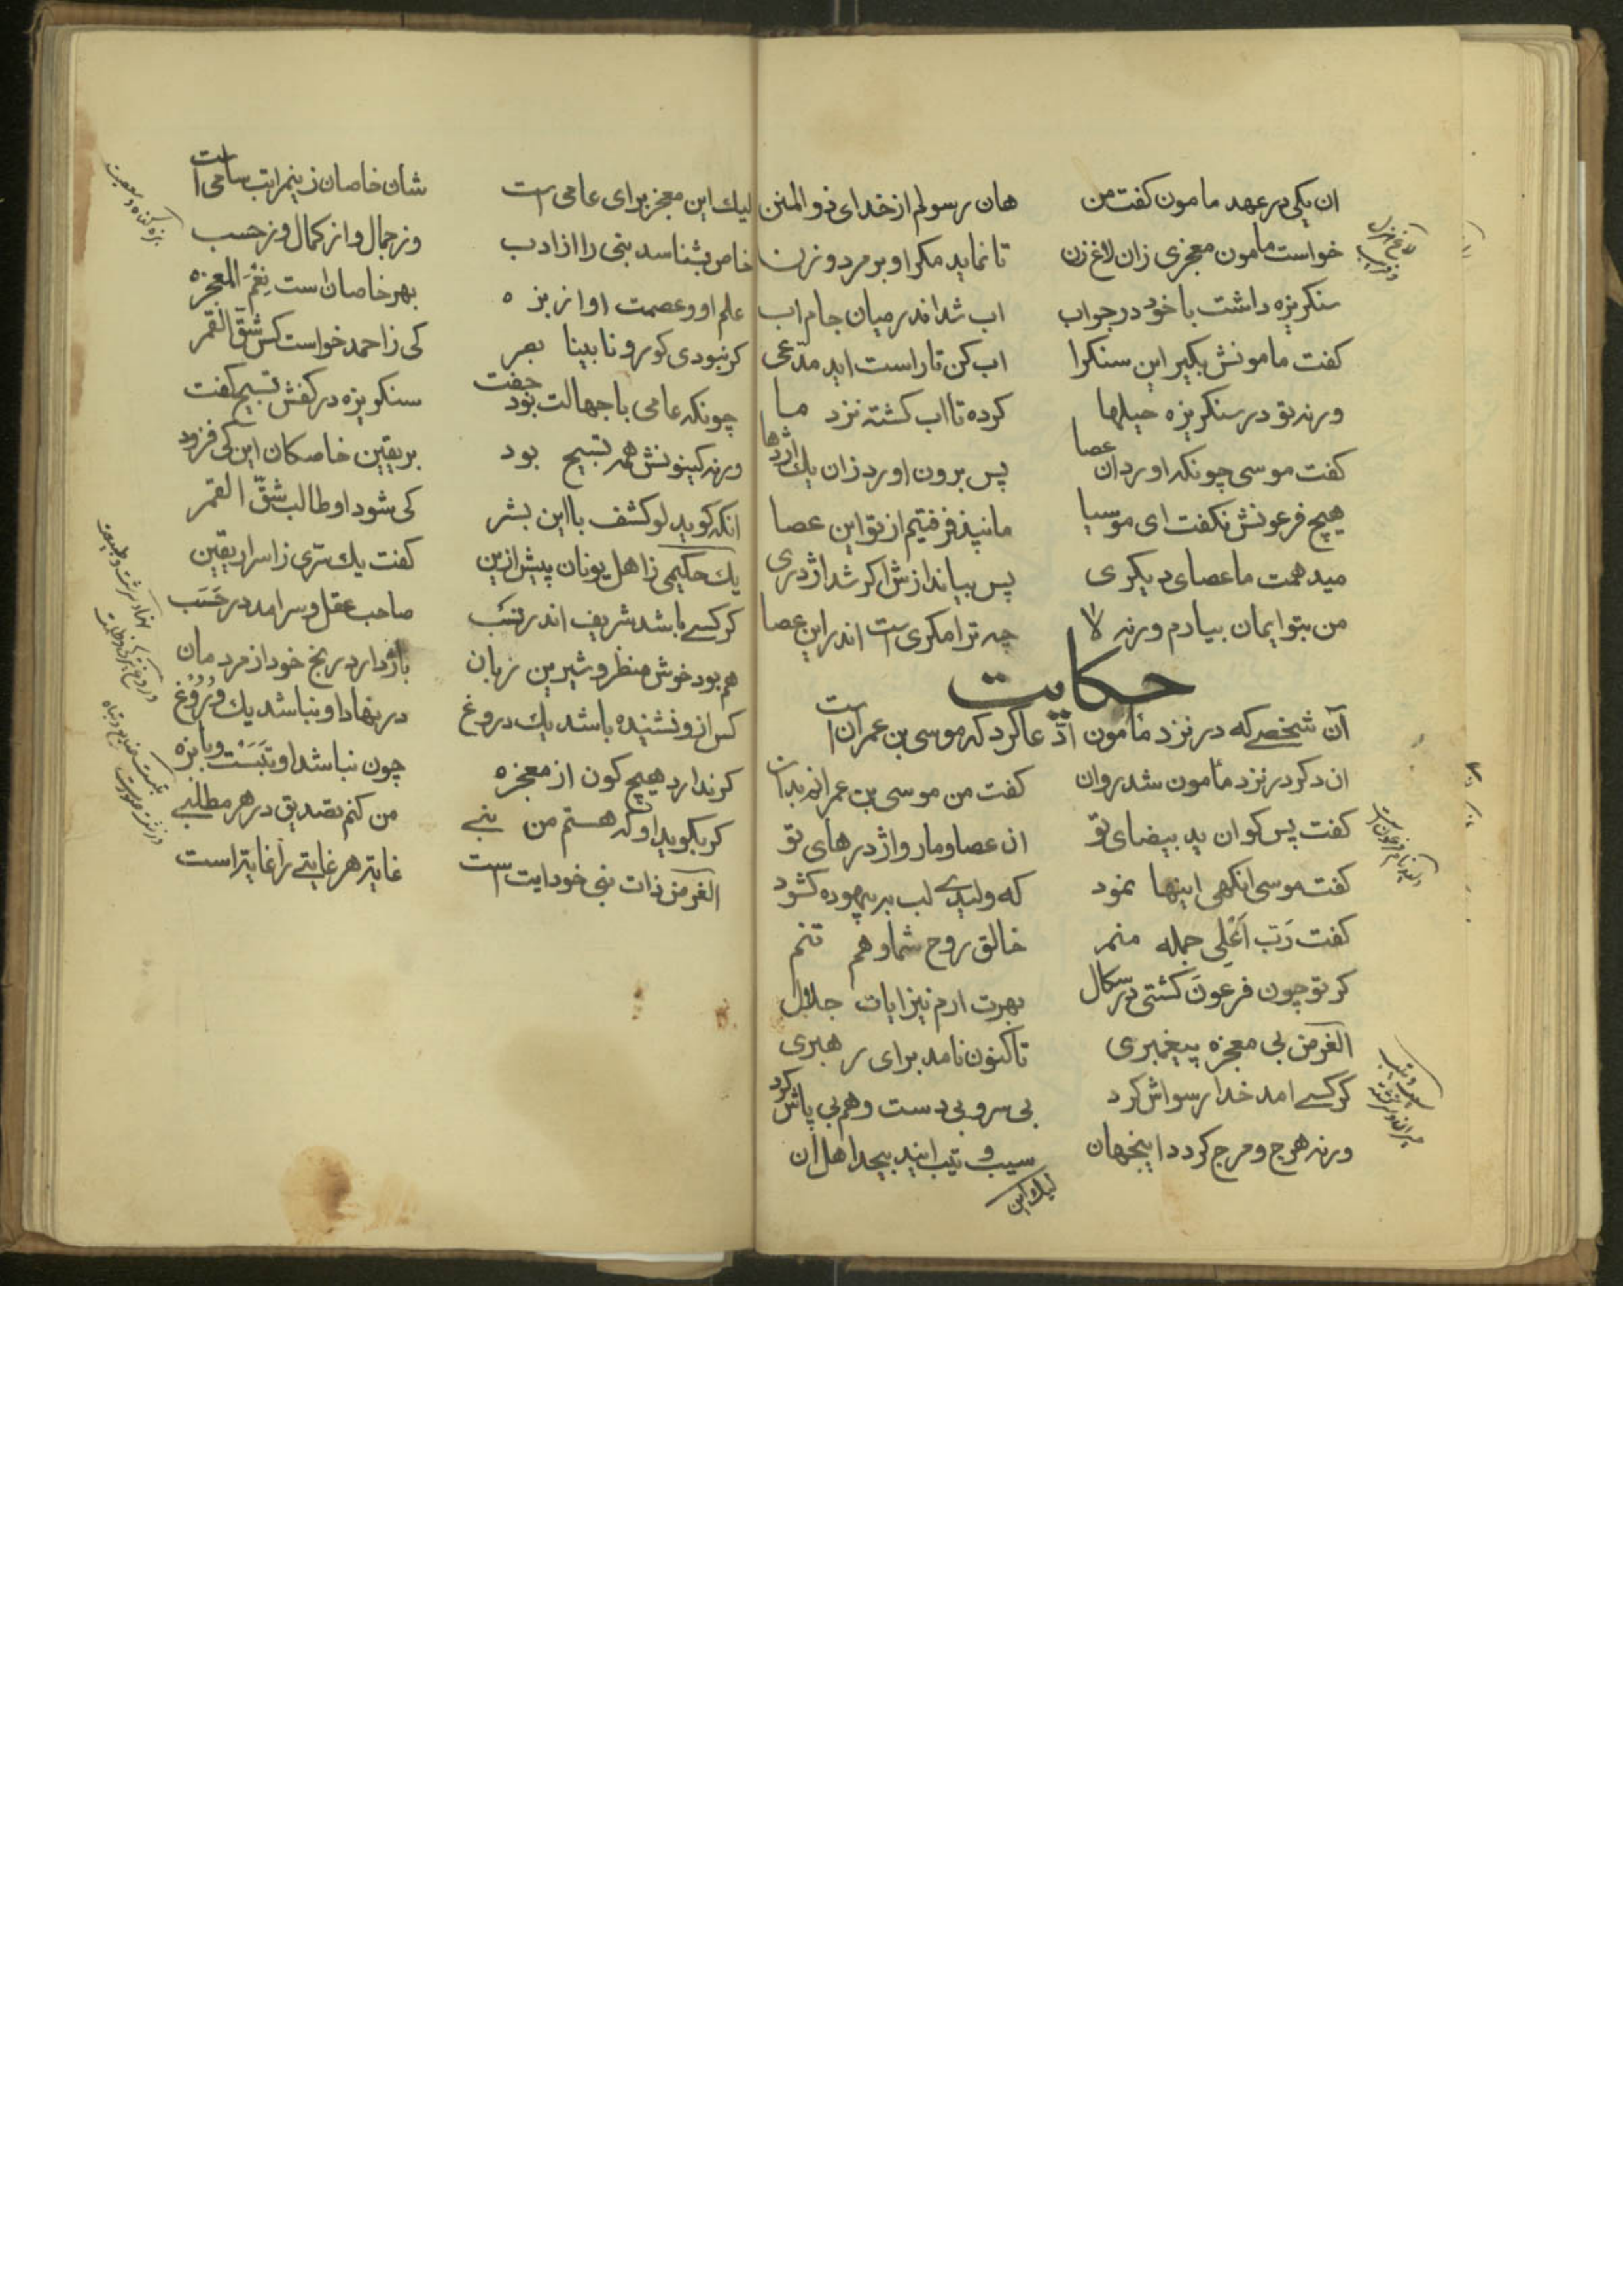 ان یکی در عهد مامون کفت من هان رسولم از خدای ذو المنن
خواست مامون معجزی زان لاغ زن تا نماید مکر او بر مرد و زن
سنکریزه داشت با خود در جواب اب شد اندر میان جام اب
کفت مامونش بکیر این سنکرا اب کن تا راست اید مدّعی
ورنه تو در سنکریزه حیلها کرده تا اب کشته نزد ما
کفت موسی چونکه اورد ان عصا پس برون اورد زان یك اژدها
هیچ فرعونش نکفت ای موسیا ما نپذرفتیم از تو این عصا
میدهمت ما عصای دیکری پس بیاندازش اکر شد اژدری
من بتو ایمان بیارم ورنه لا چه ترا مکری است اندر این عصا
حکایت
آن شخصے که در نزد مأمون ادّعا کرد که موسی بن عمران است
ان دکر در نزد مأمون شد روان کفت من موسی بن عمرانم بدان
کفت پس کو ان ید بیضای تو ان عصا و مار و اژدرهای تو
کفت موسی انکهی اینها نمود که ولیدے لب بر بیهوده کشود
کفت رَبّ اَعْلی جمله منم خالق روح شما و هم تنم
کر تو چون فرعون کشتی در سکال بهرت ارم نیز ایات جلال
الغرض بی معجزه پیغمبری تاکنون نامد برای رهبری
کر کسے امد خدا رسواش کرد بی سر و بی دست و هم بی پاش کرد
ورنه هرج و مرج کردد اینجهان سیب و تیب ایند بیحد اهل ان
لیك این
لیك این معجز برای عامی است شان خاصان زینمراتب سامی است
خاص بشناسد نبی را از ادب وز جمال و از کمال و ز حسب
علم او و عصمت او از بزه بهر خاصان است نِعْمَ المعجزه
کر نبودی کور و نابینا بصر کی ز احمد خواست کس شقّ القمر
چونکه عامی با جهالت بود جفت سنکریزه در کفش تسبیح کفت
ورنه کینونش همه تسبیح بود بر یقین خاصکان این کی فزود
انکه کوید لو کشف با این بشر کی شود او طالب شقّ القمر
یك حکیمی ز اهل یونان پیش ازین کفت یك سرّی ز اسرار یقین
کر کسے باشد شریف اندر نسَب صاحب عقل و سرامد در حَسَب
هم بود خوش منظر و شیرین زبان باز دارد رنج خود از مردمان
کس ازو نشنیده باشد یك دروغ در نهاد او نباشد یك وُرُوُغ
کر ندارد هیچ کون از معجزه چون نباشد او تبَسْت و با بزه
کر بکوید او که هستم من نبے من کنم تصدیق در هر مطلبے
الغرض ذات نبی خود ایت است غایتر هر غایتے را غایتر است
بزه کناه و معصیت